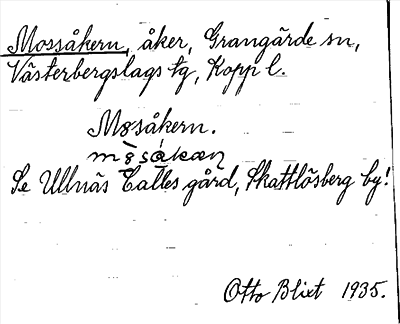 Mossåkern, åker, Grangärde sn,
Västerbergslags tg, Kopp l.
Mosåkern.
Se Ullnäs Calles gård, Skattlösberg by!
Otto Blixt 1935.